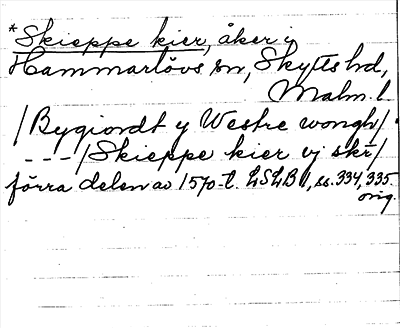 *Skieppe kier, åker i
Hammarlövs sn, Skytts hd,
Malm. l.
/Bygiordt y Westre wongh/
---/Skieppe kier vj skr/
förra delen av 1570-t. LSLB 1, ss. 334, 335.
orig.